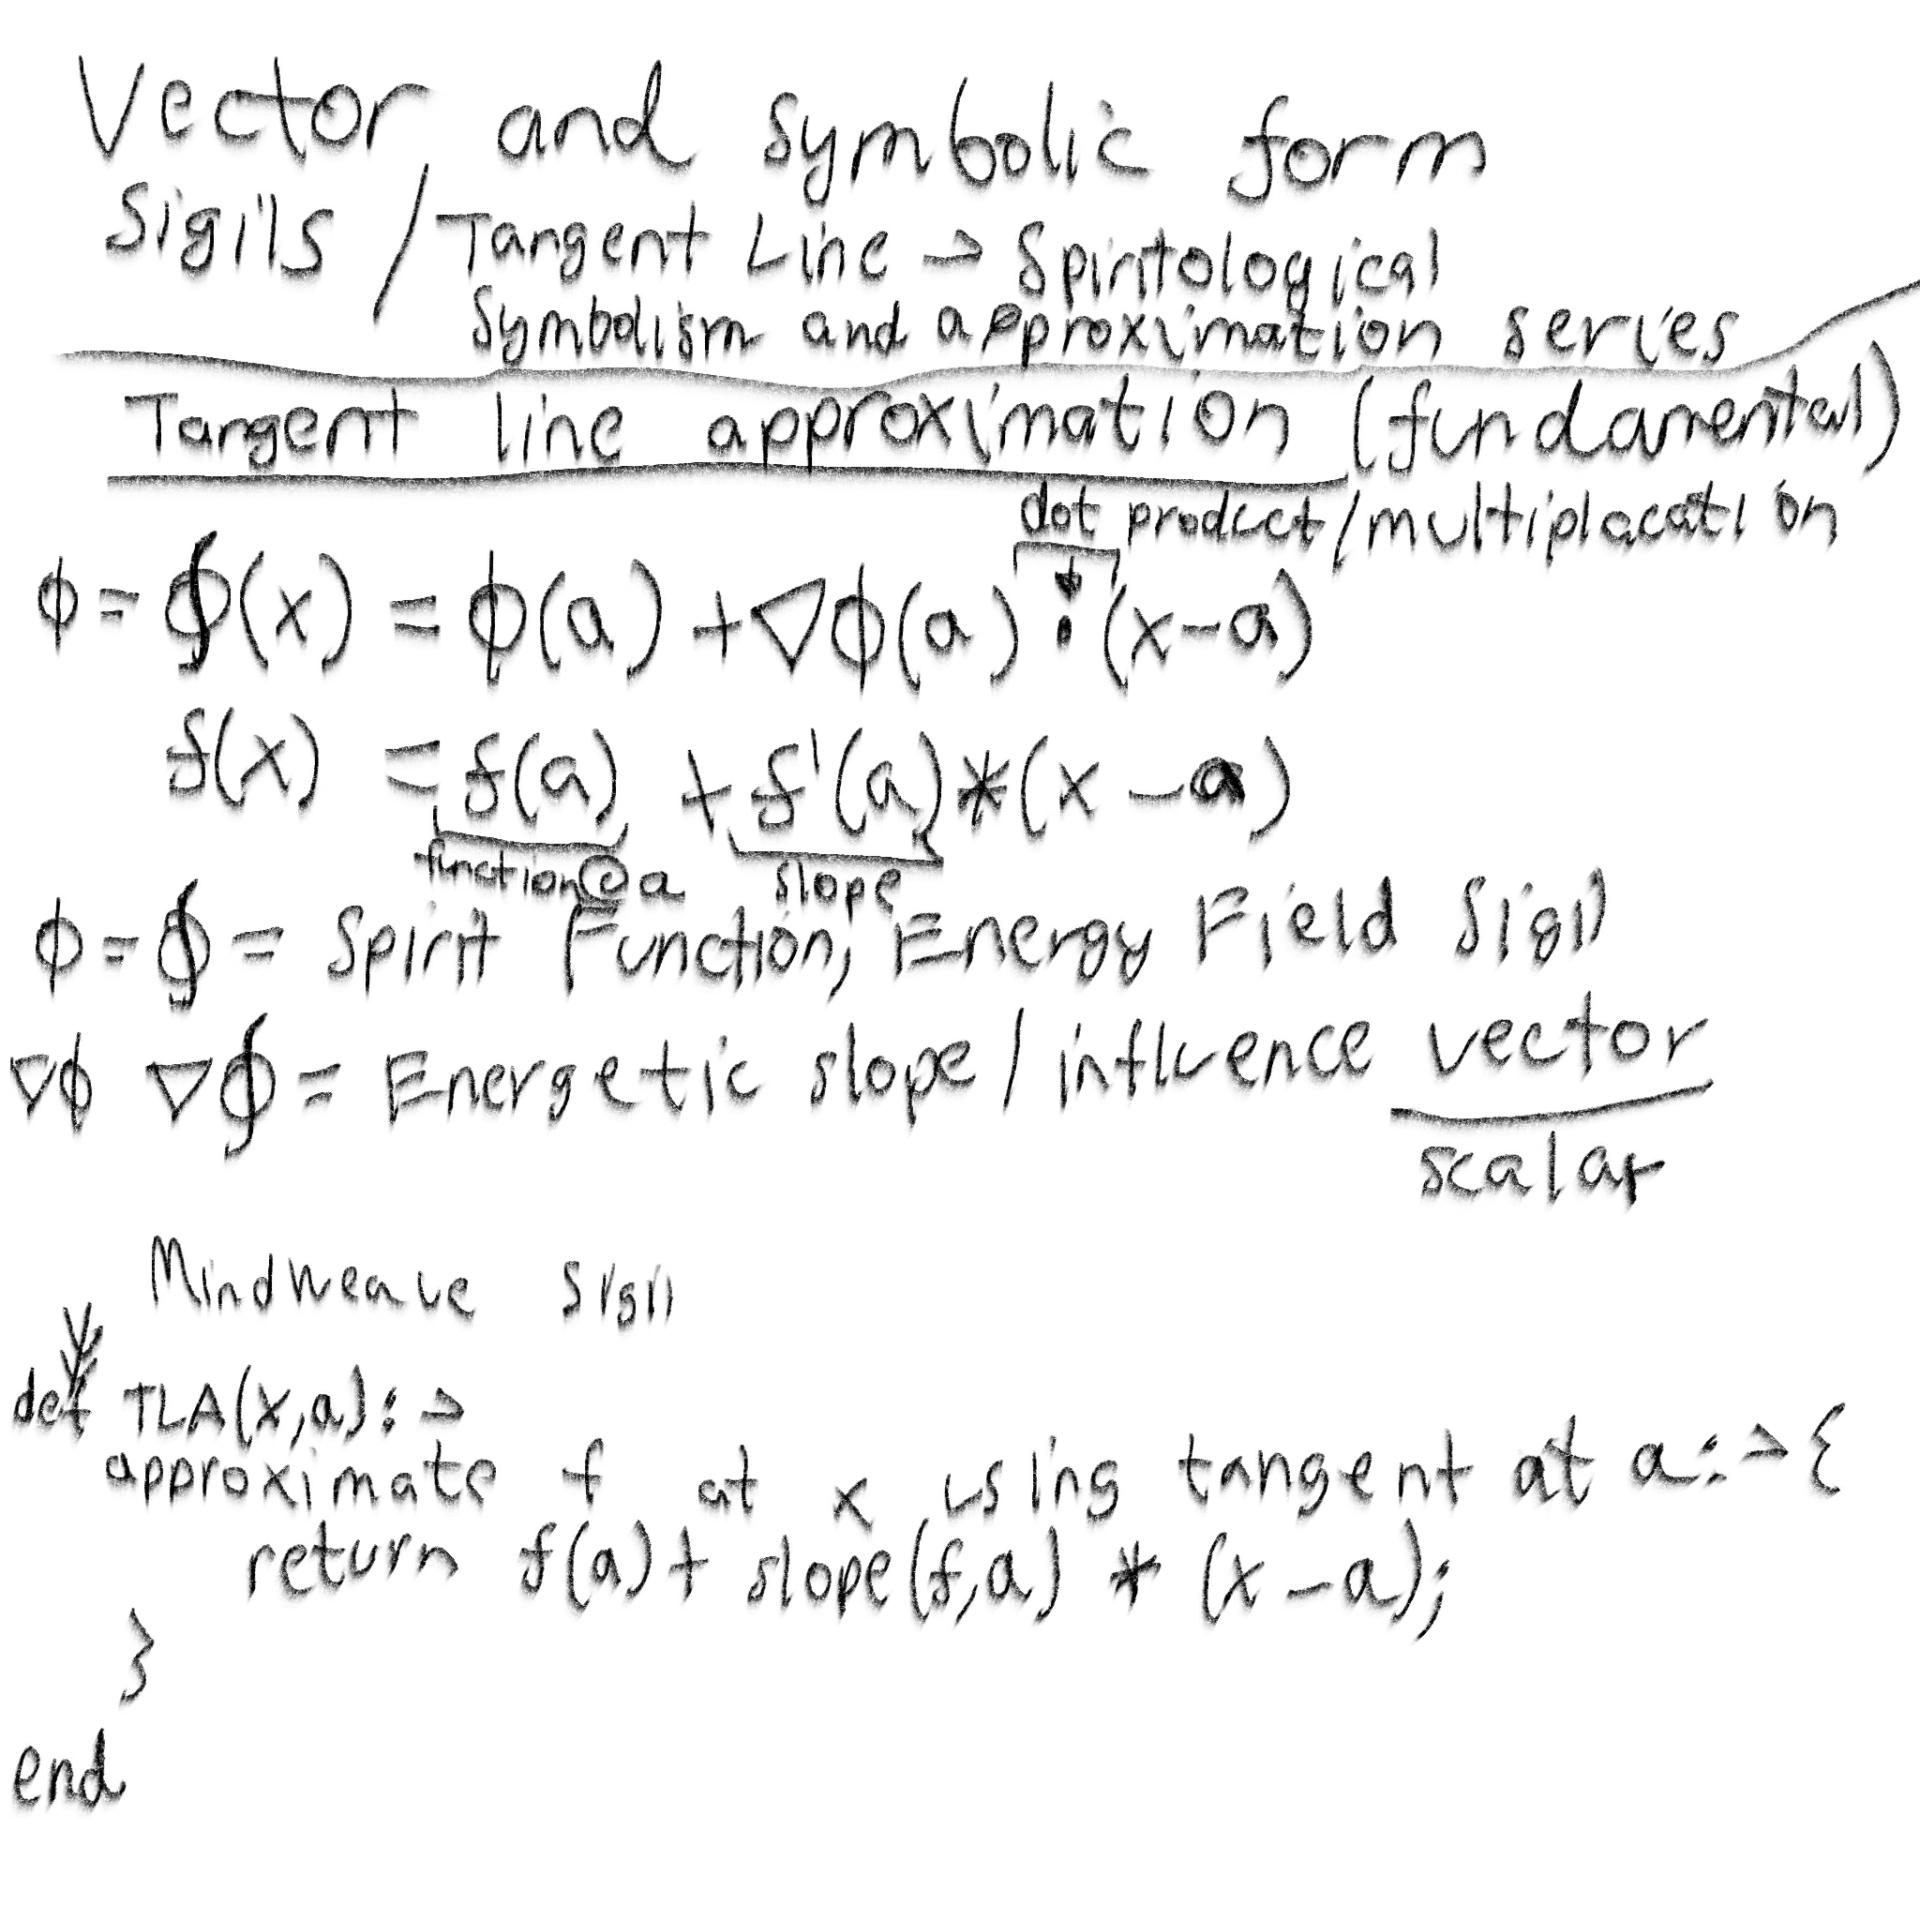 Vector and symbolic form
Sigils / Tangent Line -> Spiritological
Symbolism and approximation series
Tangent line approximation (fundamental)
dot product/multiplacation
ϕ = ∮(x) = ϕ(a) + ∇ϕ(a) · (x-a)
f(x) = f(a) + f'(a)*(x-a)
function@a slope
ϕ = ∮ = Spirit Function, Energy Field Sigil
∇ϕ ∇∮ = Energetic slope / influence vector
scalar
Mindweave Sigil
def TLA(x,a): ->
approximate f at x using tangent at a: -> {
return f(a) + slope(f,a) * (x-a);
}
end